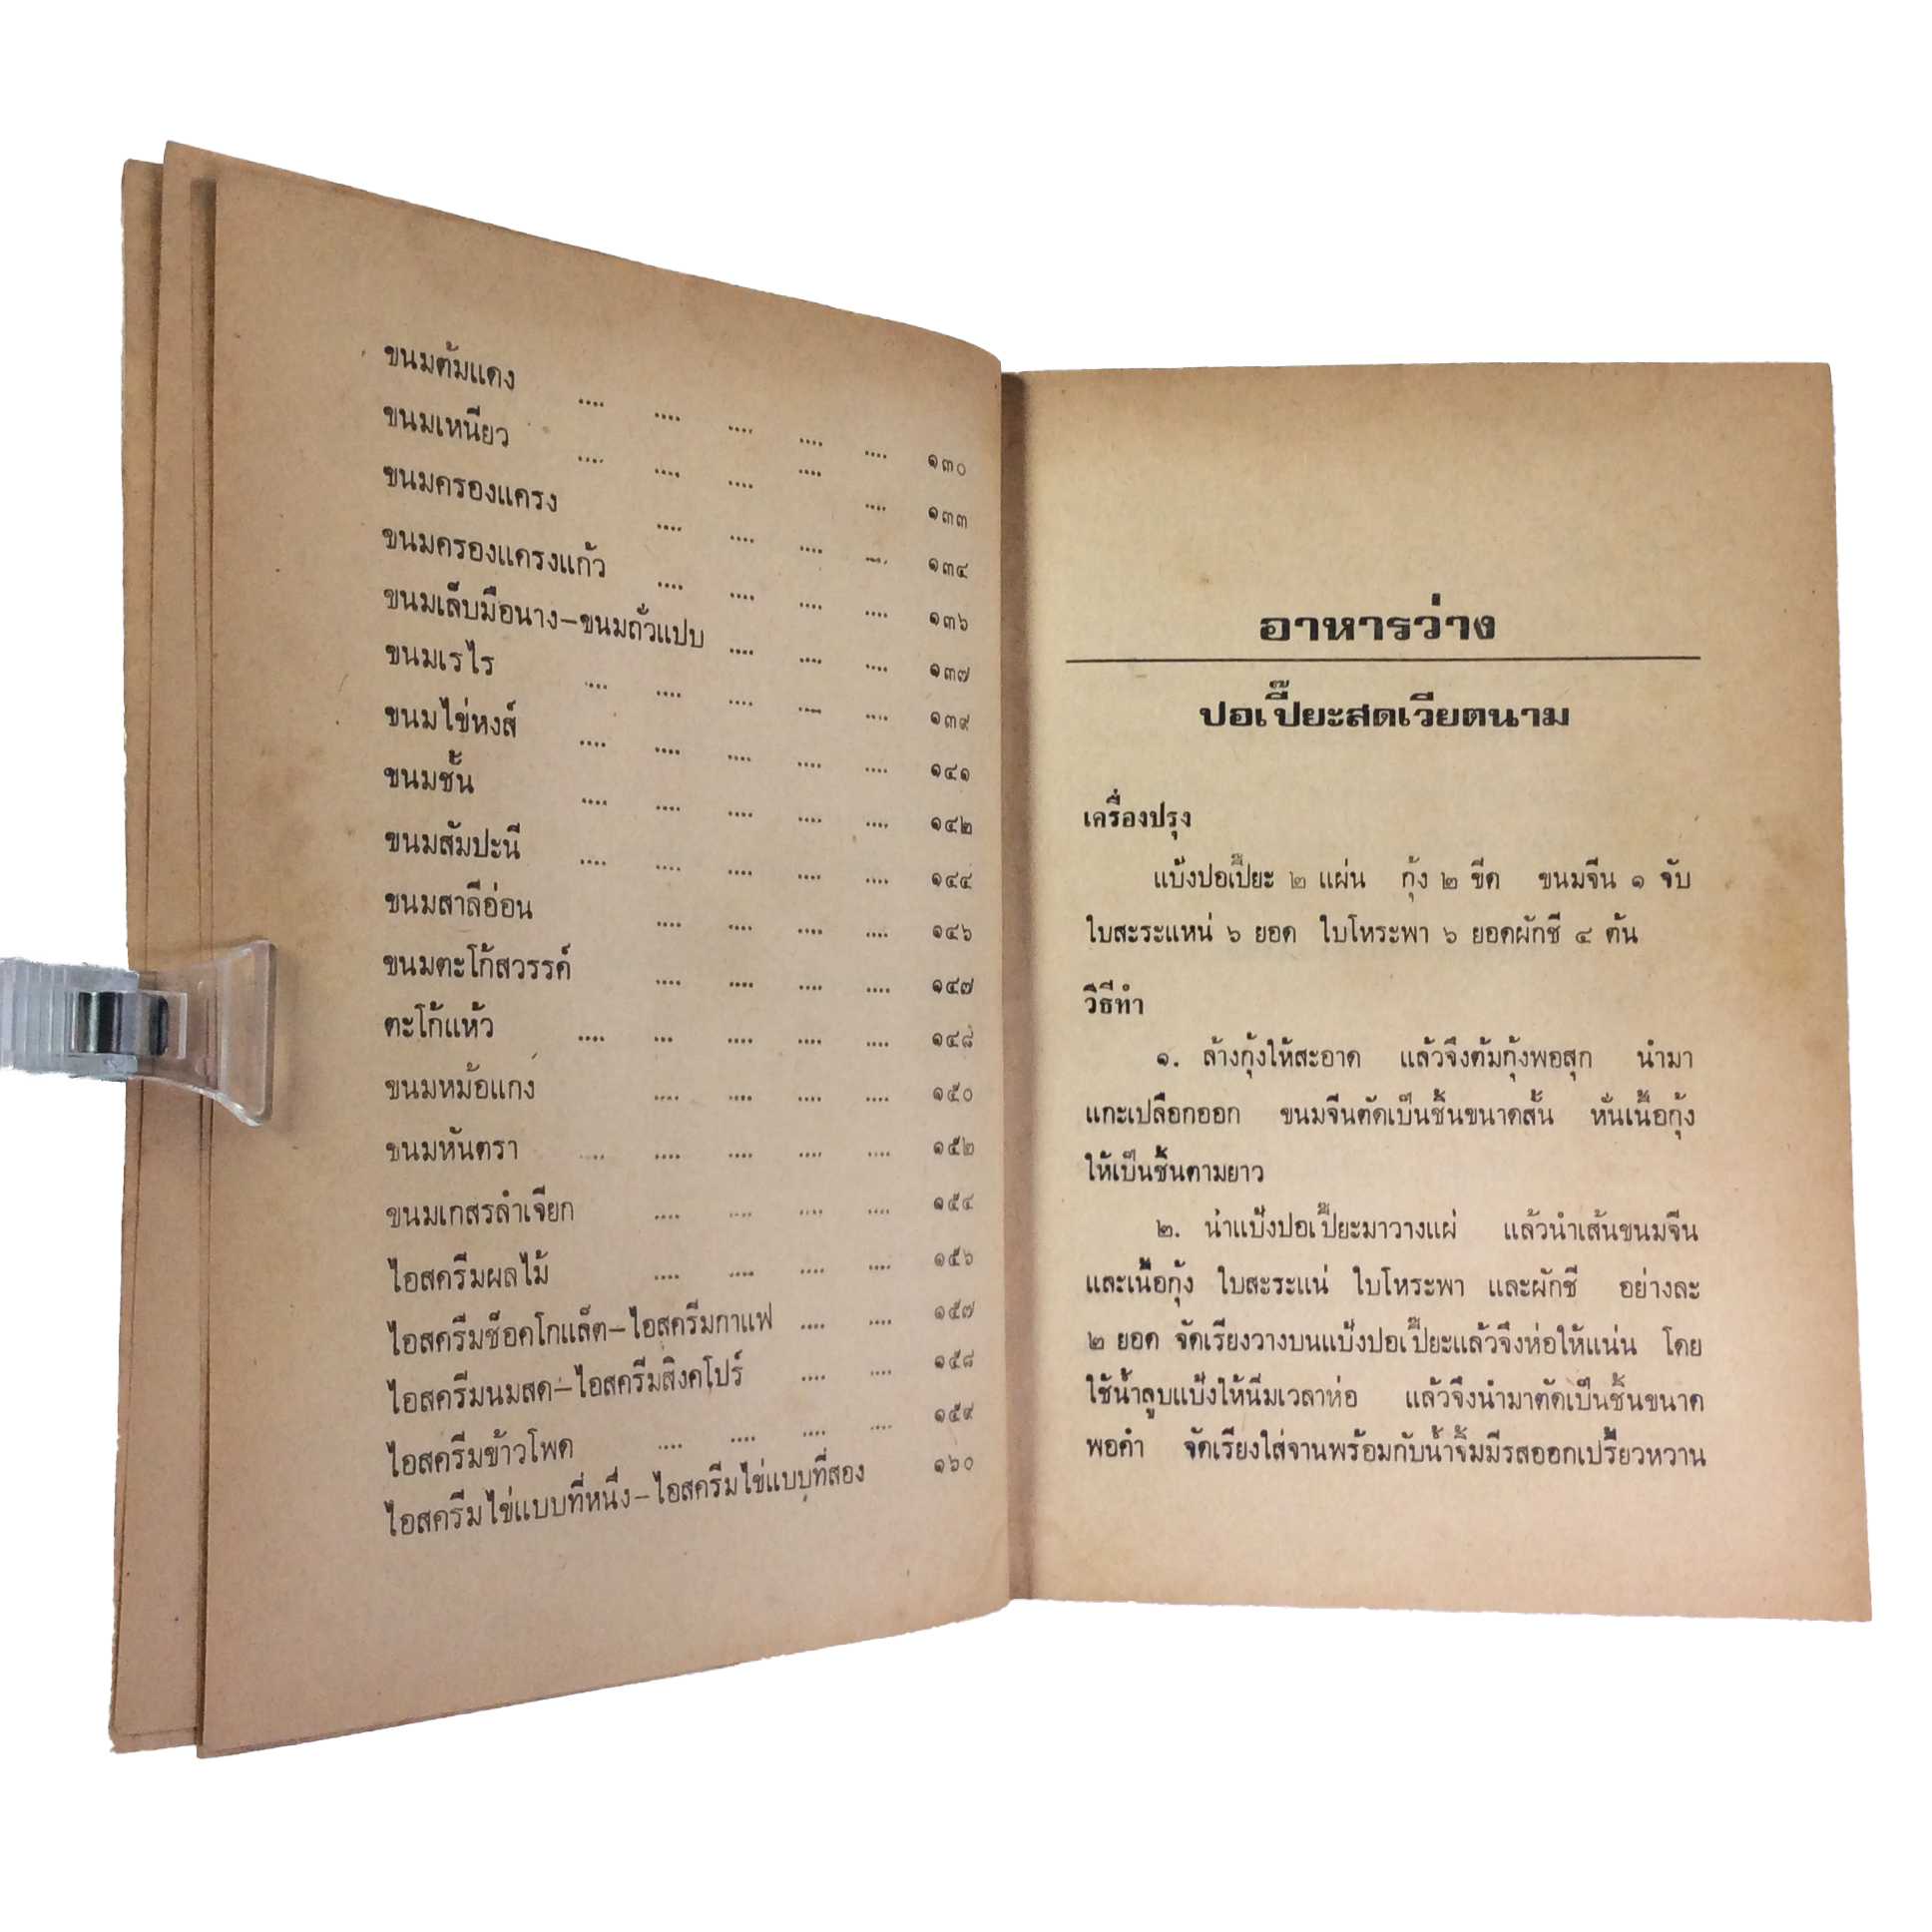 ขนมต้มแดง .... .... .... .... .... ๑๓๐
ขนมเหนียว .... .... .... .... .... ๑๓๓
ขนมครองแครง .... .... .... .... ๑๓๔
ขนมครองแครงแก้ว .... .... .... .... ๑๓๖
ขนมเล็บมือนาง–ขนมถั่วแปบ .... .... .... ๑๓๗
ขนมเรไร .... .... .... .... .... ๑๓๙
ขนมไข่หงส์ .... .... .... .... .... ๑๔๑
ขนมชั้น .... .... .... .... .... ๑๔๒
ขนมสัมปะนี .... .... .... .... .... ๑๔๔
ขนมสาลีอ่อน .... .... .... .... ๑๔๖
ขนมตะโก้สวรรค์ .... .... .... .... ๑๔๗
ตะโก้แห้ว .... ... .... .... .... ๑๔๘
ขนมหม้อแกง .... .... .... .... ๑๕๐
ขนมหันตรา .... .... .... .... .... ๑๕๒
ขนมเกสรลำเจียก .... .... .... .... ๑๕๔
ไอสครีมผลไม้ .... .... .... .... ๑๕๖
ไอสครีมช็อคโกแล็ต–ไอสครีมกาแฟ .... .... ๑๕๗
ไอสครีมนมสด–ไอสครีมสิงคโปร์ .... .... ๑๕๘
ไอสครีมข้าวโพด .... .... .... .... ๑๕๙
ไอสครีมไข่แบบที่หนึ่ง–ไอสครีมไข่แบบที่สอง ๑๖๐
อาหารว่าง
ปอเปี๊ยะสดเวียตนาม
เครื่องปรุง
แป้งปอเปี๊ยะ ๒ แผ่น กุ้ง ๒ ขีด ขนมจีน ๑ จับ
ใบสะระแหน่ ๖ ยอด ใบโหระพา ๖ ยอดผักชี ๔ ต้น
วิธีทำ
๑. ล้างกุ้งให้สะอาด แล้วจึงต้มกุ้งพอสุก นำมา
แกะเปลือกออก ขนมจีนตัดเป็นชิ้นขนาดสั้น หั่นเนื้อกุ้ง
ให้เป็นชิ้นตามยาว
๒. นำแป้งปอเปี๊ยะมาวางแผ่ แล้วนำเส้นขนมจีน
และเนื้อกุ้ง ใบสะระแน่ ใบโหระพา และผักชี อย่างละ
๒ ยอด จัดเรียงวางบนแป้งปอเปี๊ยะแล้วจึงห่อให้แน่น โดย
ใช้น้ำลูบแป้งให้นิ่มเวลาห่อ แล้วจึงนำมาตัดเป็นชิ้นขนาด
พอคำ จัดเรียงใส่จานพร้อมกับน้ำจิ้มมีรสออกเปรี้ยวหวาน